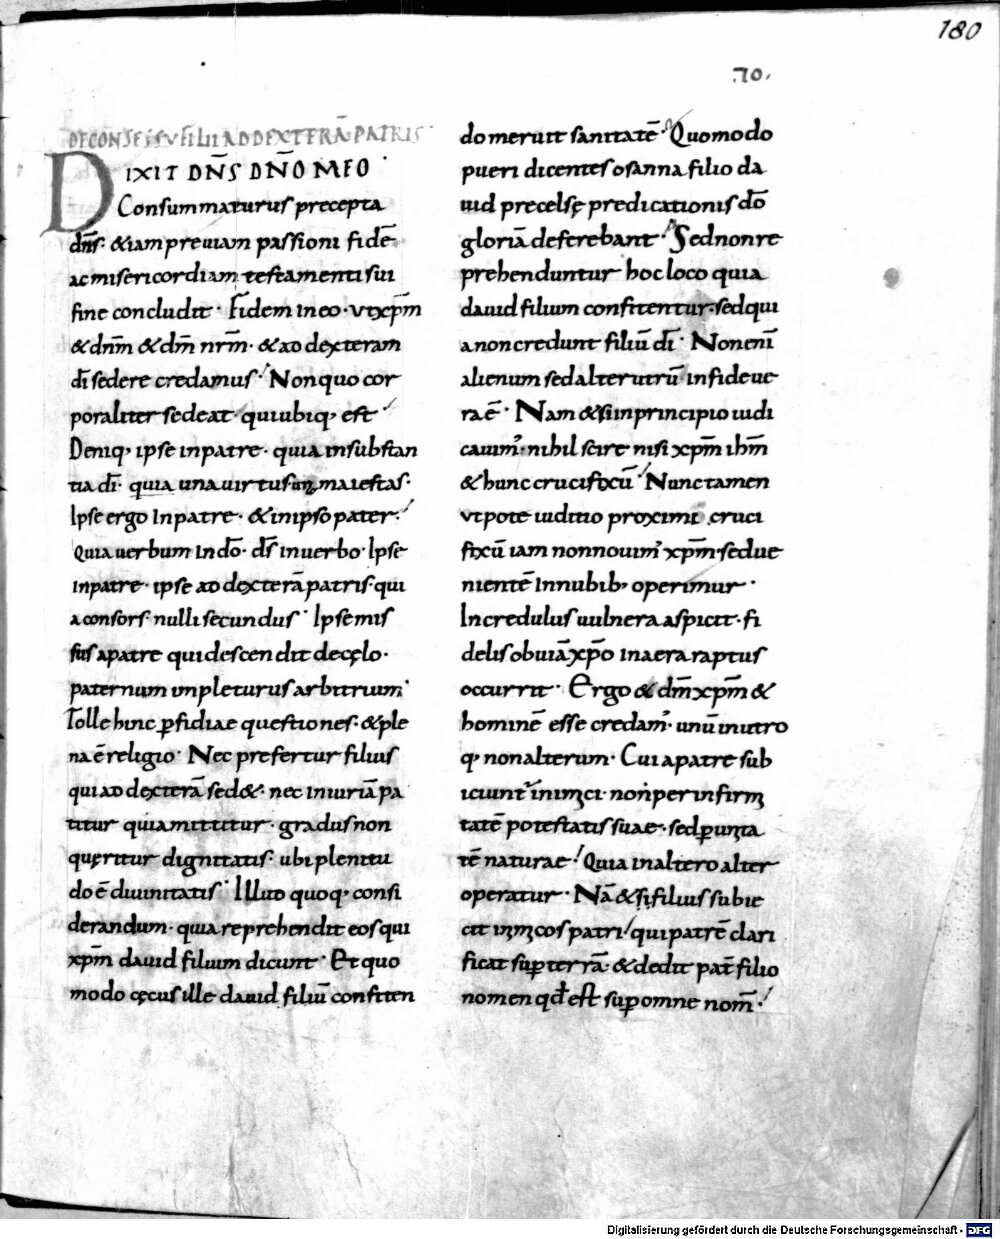 180
70.
DE CONSESSV FILII AD DEXTERĀ PATRIS
DIXIT DN̄S DN̄O MEO
Consummaturus precepta
dn̄s. & iam preuiam passioni fidē
ac misericordiam testamenti sui
fine concludit. Fidem in eo. ut xp̄m
& dn̄m & dm̄ nr̄m. & ad dexteram
dī sedere credamus. Non quo cor
poraliter sedeat. qui ubiq; est.
Deniq; ipse in patre. quia in substan
tia dī. quia una uirtus maiestas.
Ipse ergo in patre. & in ipso pater.
Quia uerbum in dō. ds̄ in uerbo. Ipse
in patre. ipse ad dexterā patris. qui
a consors. nulli secundus. Ipse mis
sus a patre qui descendit de cęlo.
paternum impleturus arbitrium.
Tolle hinc ꝑfidiae questiones. & ple
na ē religio. Nec prefertur filius
qui ad dexterā sed&. nec iniuriā pa
titur quia mittitur. gradus non
quęritur dignitatis. ubi plenitu
do ē diuinitatis. Illud quoq; consi
derandum. quia reprehendit eos qui
xp̄m dauid filium dicunt. Et quo
modo cęcus ille dauid filiū confiten
do meruit sanitatē. Quomodo
pueri dicentes osanna filio da
uid precelsę predicationis dō
gloriā deferebant. Sed non re
prehenduntur hoc loco quia
dauid filium confitentur. sed qui
a non credunt filiū dī. Non enī
alienum sed alterutrū in fide ue
ra ē. Nam & si in principio iudi
cauim'. nihil scire nisi xp̄m ihm̄
& hunc crucifixū. Nunc tamen
ut pote iudicio proximi cruci
fixū iam non nouim' xp̄m. sed ue
nientē in nubib; operimur.
Incredulus uulnera aspicit. fi
delis obuiā xp̄o in aera raptus
occurrit. Ergo & dm̄ xp̄m &
hominē esse credam'. unū in utro
q; non alterum. Cui a patre sub
iciunt' inimici. non per infirmi
tatē potestatis suae. sed ꝑ unita
tē naturae. Quia in altero alter
operatur. Nā & si filius subie
cit inimicos patri. qui patrē clari
ficat suꝑ terrā. & dedit pat̄ filio
nomen qđ est suꝑ omne nom̄.
Digitalisierung gefördert durch die Deutsche Forschungsgemeinschaft - DFG